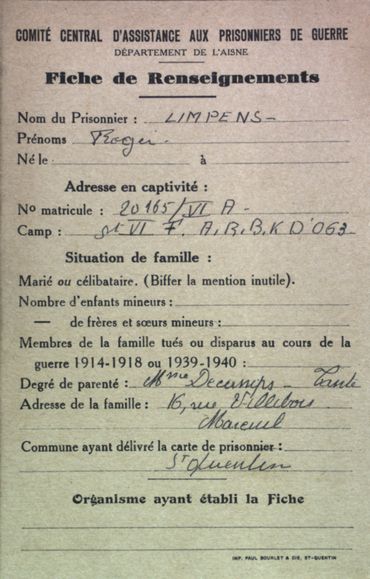 COMITÉ CENTRAL D'ASSISTANCE AUX PRISONNIERS DE GUERRE
DÉPARTEMENT DE L'AISNE
Fiche de Renseignements
Nom du Prisonnier : LIMPENS -
Prénoms Roger -
Né le à
Adresse en captivité :
No matricule : 20165/VI A -
Camp : VI F. A.R.B.K D'063-
Situation de famille :
Marié ou célibataire. (Biffer la mention inutile).
Nombre d'enfants mineurs :
— de frères et sœurs mineurs :
Membres de la famille tués ou disparus au cours de la
guerre 1914-1918 ou 1939-1940 :
Degré de parenté : Mme - Tante
Adresse de la famille : 16, rue Villebois
Mareuil
Commune ayant délivré la carte de prisonnier :
St Quentin
Organisme ayant établi la Fiche
IMP. PAUL BOURLET & CIE, ST-QUENTIN